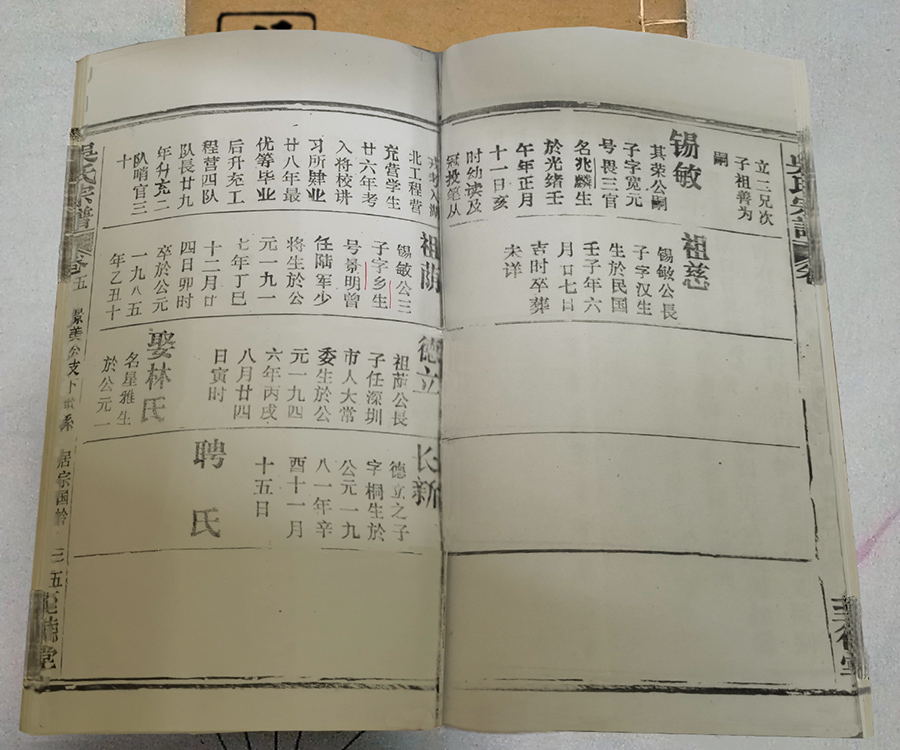 立二兄次
子祖善为
嗣
锡敏
其荣公嗣
子字宽元
号畏三官
名兆麟生
於光绪壬
午年正月
十一日亥
时幼读及
冠投笔从
祖慈
锡敏公長
子字汉生
生於民国
壬子年六
月廿七日
吉时卒葬
未详
北工程营
充营学生
廿六年考
入将校讲
习所肄业
廿八年最
优等毕业
后升充工
程营四队
队長廿九
年升充二
队哨官三
十
祖荫
锡敏公三
子字乡生
号景明曾
任陆军少
将生於公
元一九一
七年丁巳
十二月廿
四日卯时
卒於公元
一九八五
年乙丑十
德立
祖荫公長
子任深圳
市人大常
委生於公
元一九四
六年丙戌
八月廿四
日寅时
娶林氏
名星雅生
於公元一
长新
德立之子
字桐生於
公元一九
八一年辛
酉十一月
十五日
聘 氏
吴氏宗谱
卷五
居宗国龄
三五
至德堂